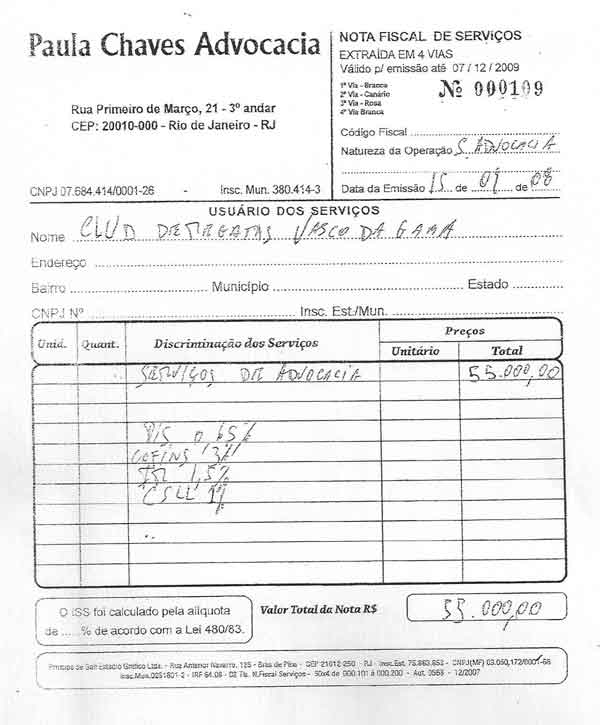 Paula Chaves Advocacia
Rua Primeiro de Março, 21 - 3º andar
CEP: 20010-000 - Rio de Janeiro - RJ
CNPJ 07.684.414/0001-26 - Insc. Mun. 380.414-3
NOTA FISCAL DE SERVIÇOS
EXTRAÍDA EM 4 VIAS
Válido p/ emissão até 07/12/2009
1ª Via - Branca
2ª Via - Canário
3ª Via - Rosa
4ª Via Branca
Nº 000109
Código Fiscal
Natureza da Operação S. ADVOCACIA
Data da Emissão 15 de de 08
USUÁRIO DOS SERVIÇOS
Nome CLUB DE REGATAS VASCO DA GAMA
Endereço
Bairro Município Estado
CNPJ Nº Insc. Est./Mun.
Unid. Quant. Discriminação dos Serviços Preços
Unitário Total
SERVIÇOS DE ADVOCACIA 55.000,00
PIS 0,65%
COFINS 3%
IR 1,5%
CSLL 1%
O ISS foi calculado pela alíquota
de ..... % de acordo com a Lei 480/83.
Valor Total da Nota R$ 55.000,00
Estácio Gráfico Ltda. - Rua Antenor Navarro, - Brás de Pina - CEP 21012-250 - RJ - Insc.Est. - CNPJ(MF)
Insc.Mun. - N.Fiscal Serviços - 50x4 de 000.101 à 000.200 - Aut. - 12/2007